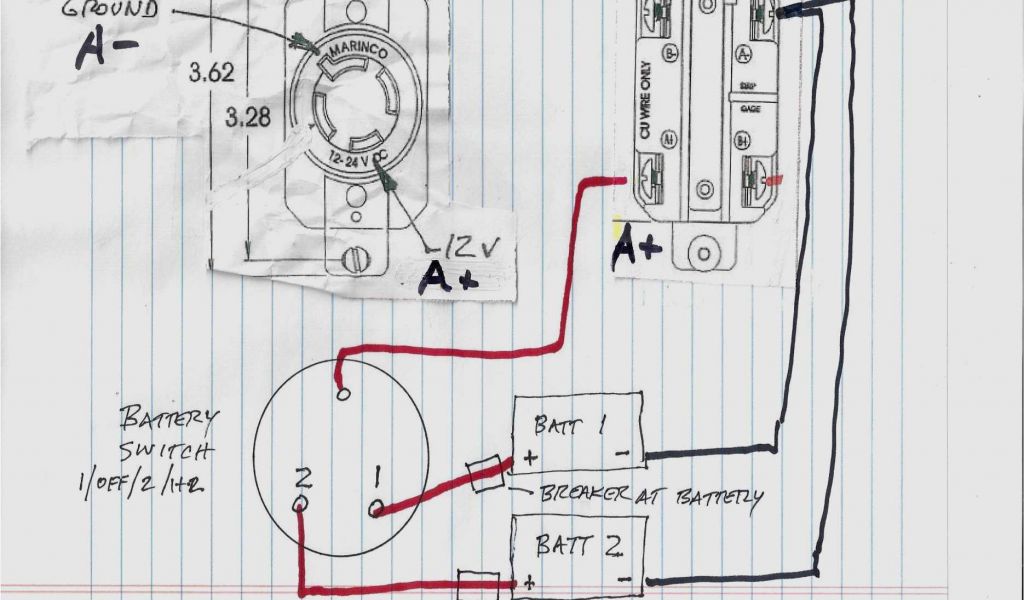 GROUND
A-
3.62
3.28
MARINCO
12-24 V DC
12 V
A+
CU WIRE ONLY
B-
A-
GAGE
A+
B+
A+
BATTERY
SWITCH
1/OFF/2/1+2
2
1
BATT 1
+
-
BREAKER AT BATTERY
BATT 2
+
-